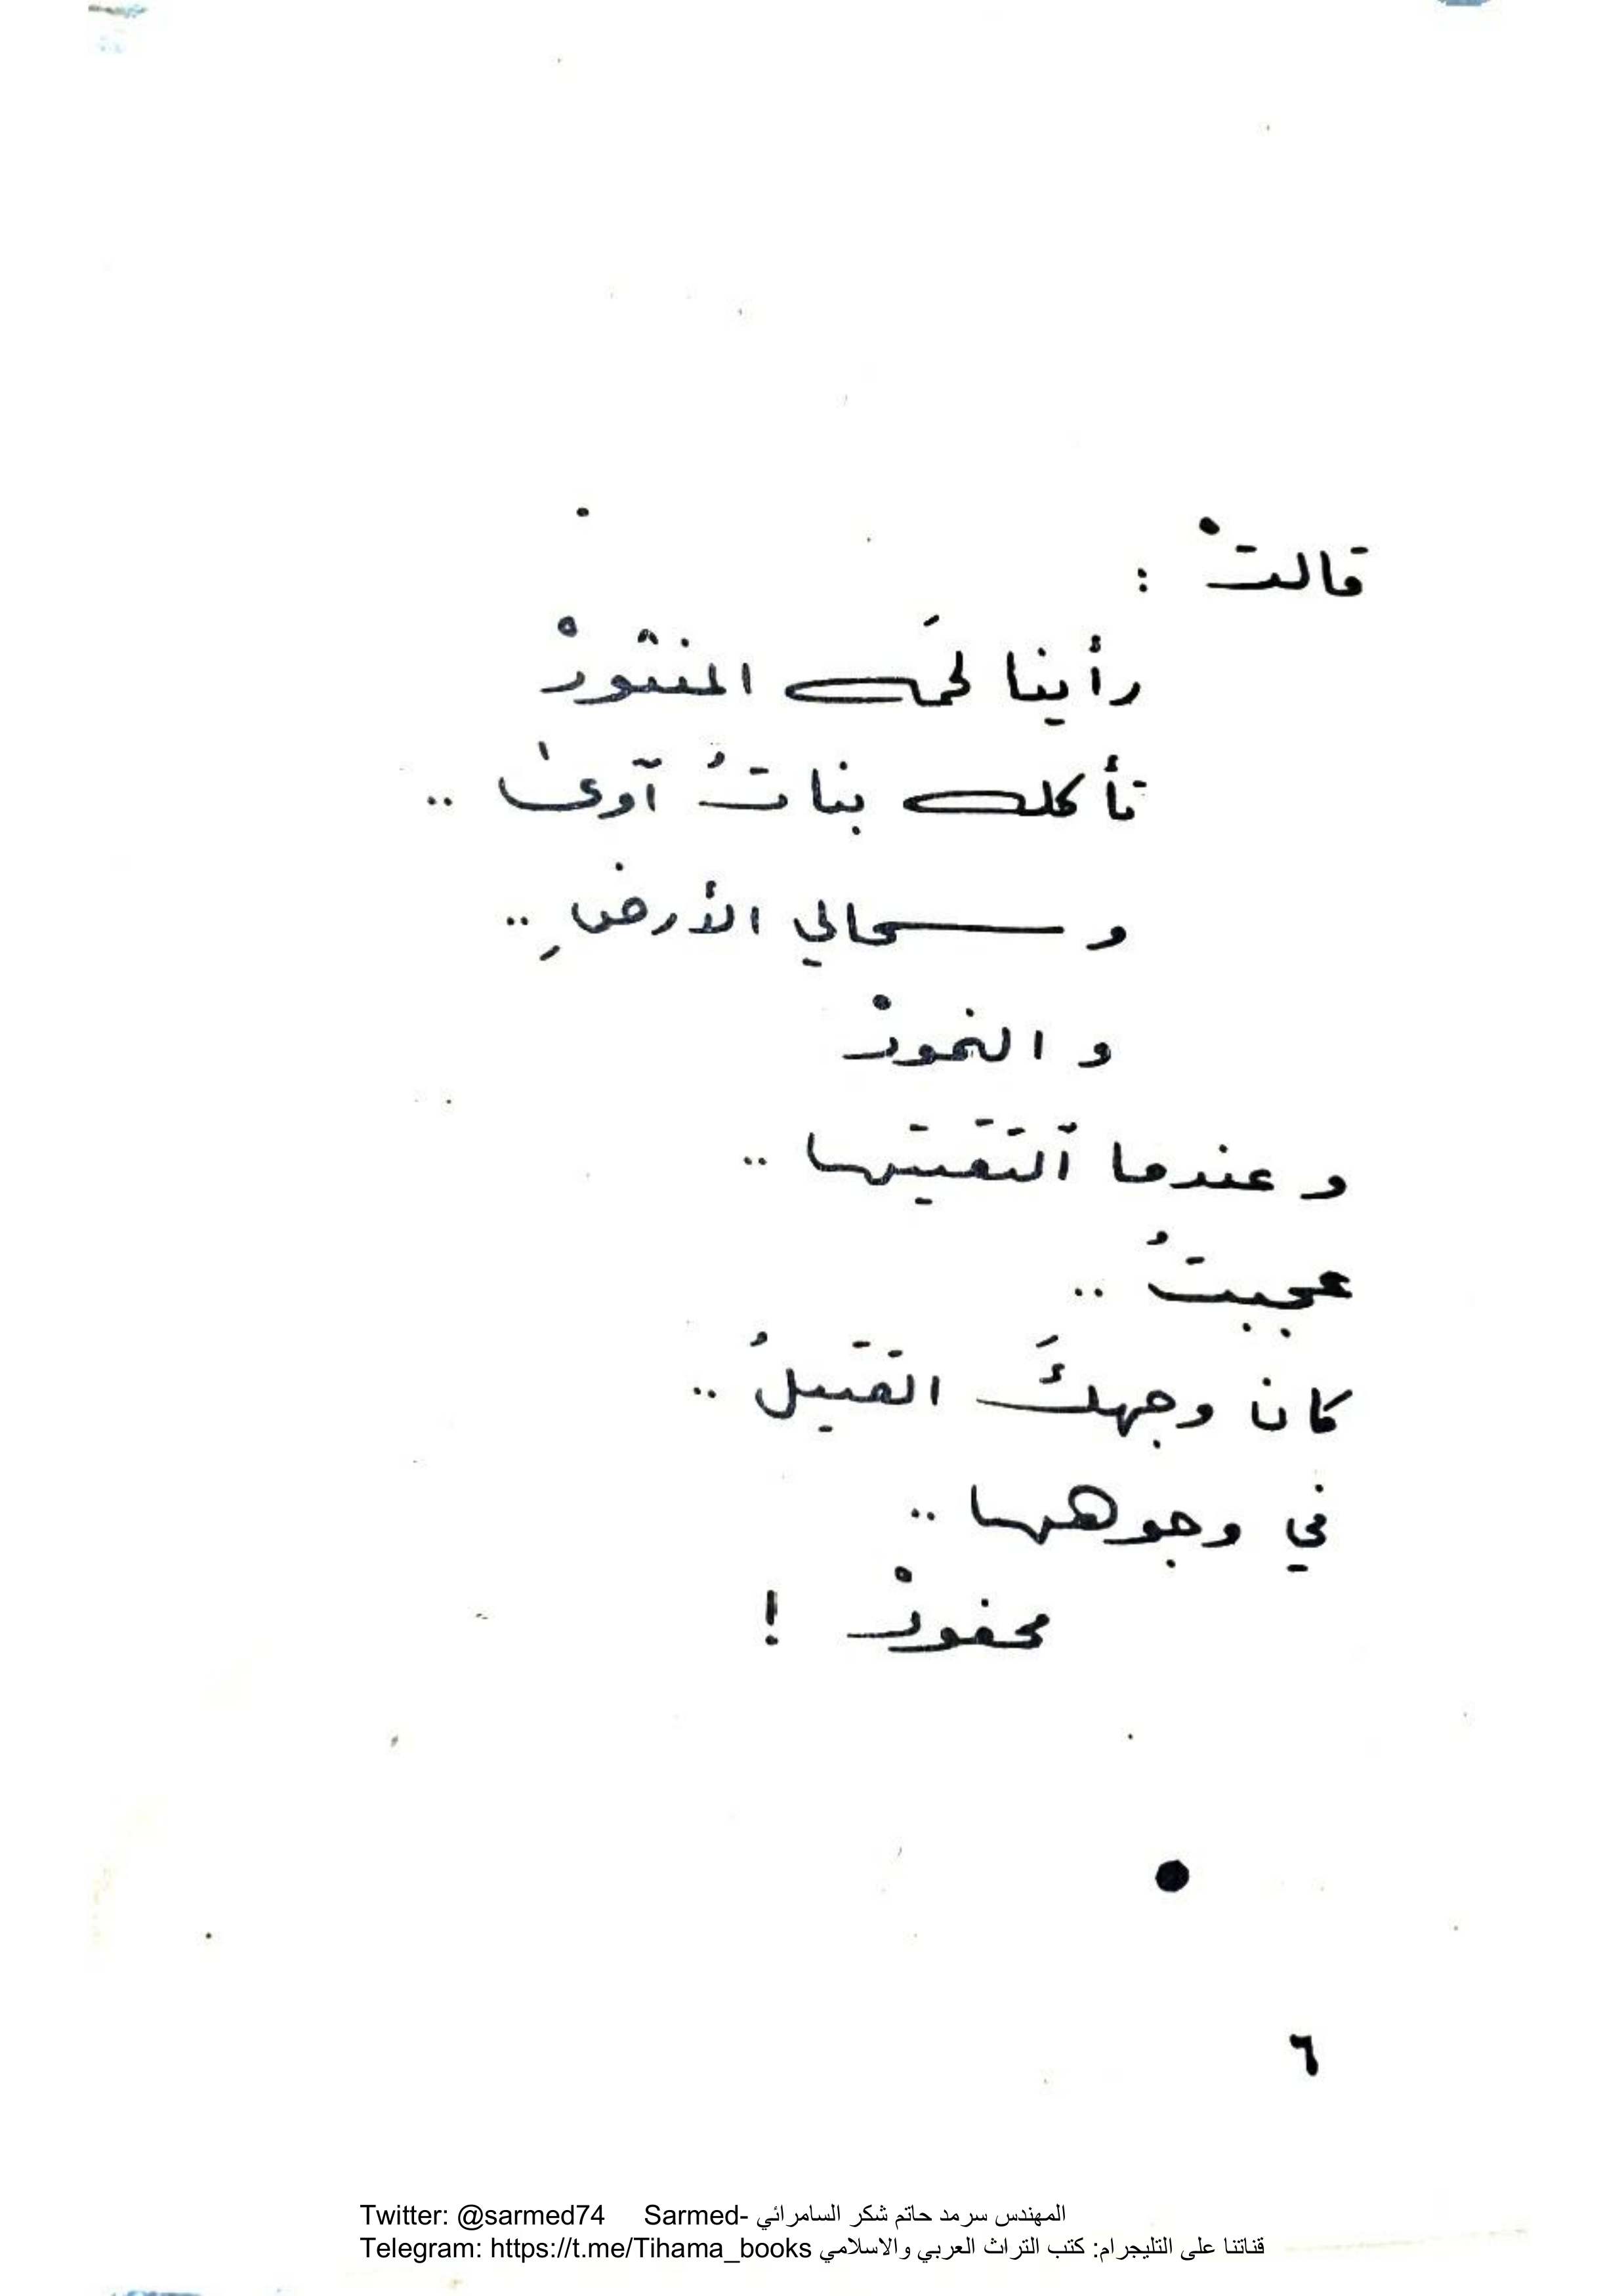 قالتْ :
رأينا لحمَك المنثورْ
تأكلك بناتُ آوىٰ ..
و سحالي الأرضِ ..
و النمورْ
و عندما ٱلتقيتها ..
عجبتُ ..
كان وجهكَ القتيلُ ..
في وجوهها ..
محفورْ !
●
٦
Twitter: @sarmed74 Sarmed- المهندس سرمد حاتم شكر السامرائي
Telegram: https://t.me/Tihama_books قناتنا على التليجرام: كتب التراث العربي والاسلامي